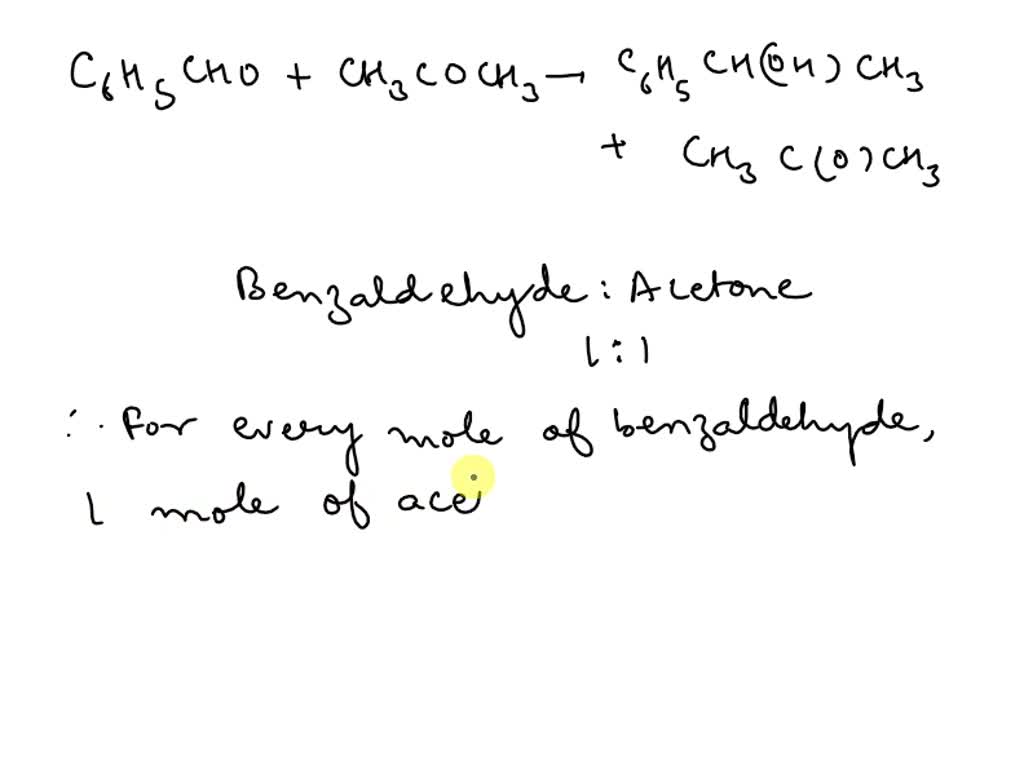 C₆H₅CHO + CH₃COCH₃ → C₆H₅CH(OH)CH₃
+ CH₃C(O)CH₃
Benzaldehyde : Acetone
1 : 1
∴ For every mole of benzaldehyde,
1 mole of ace